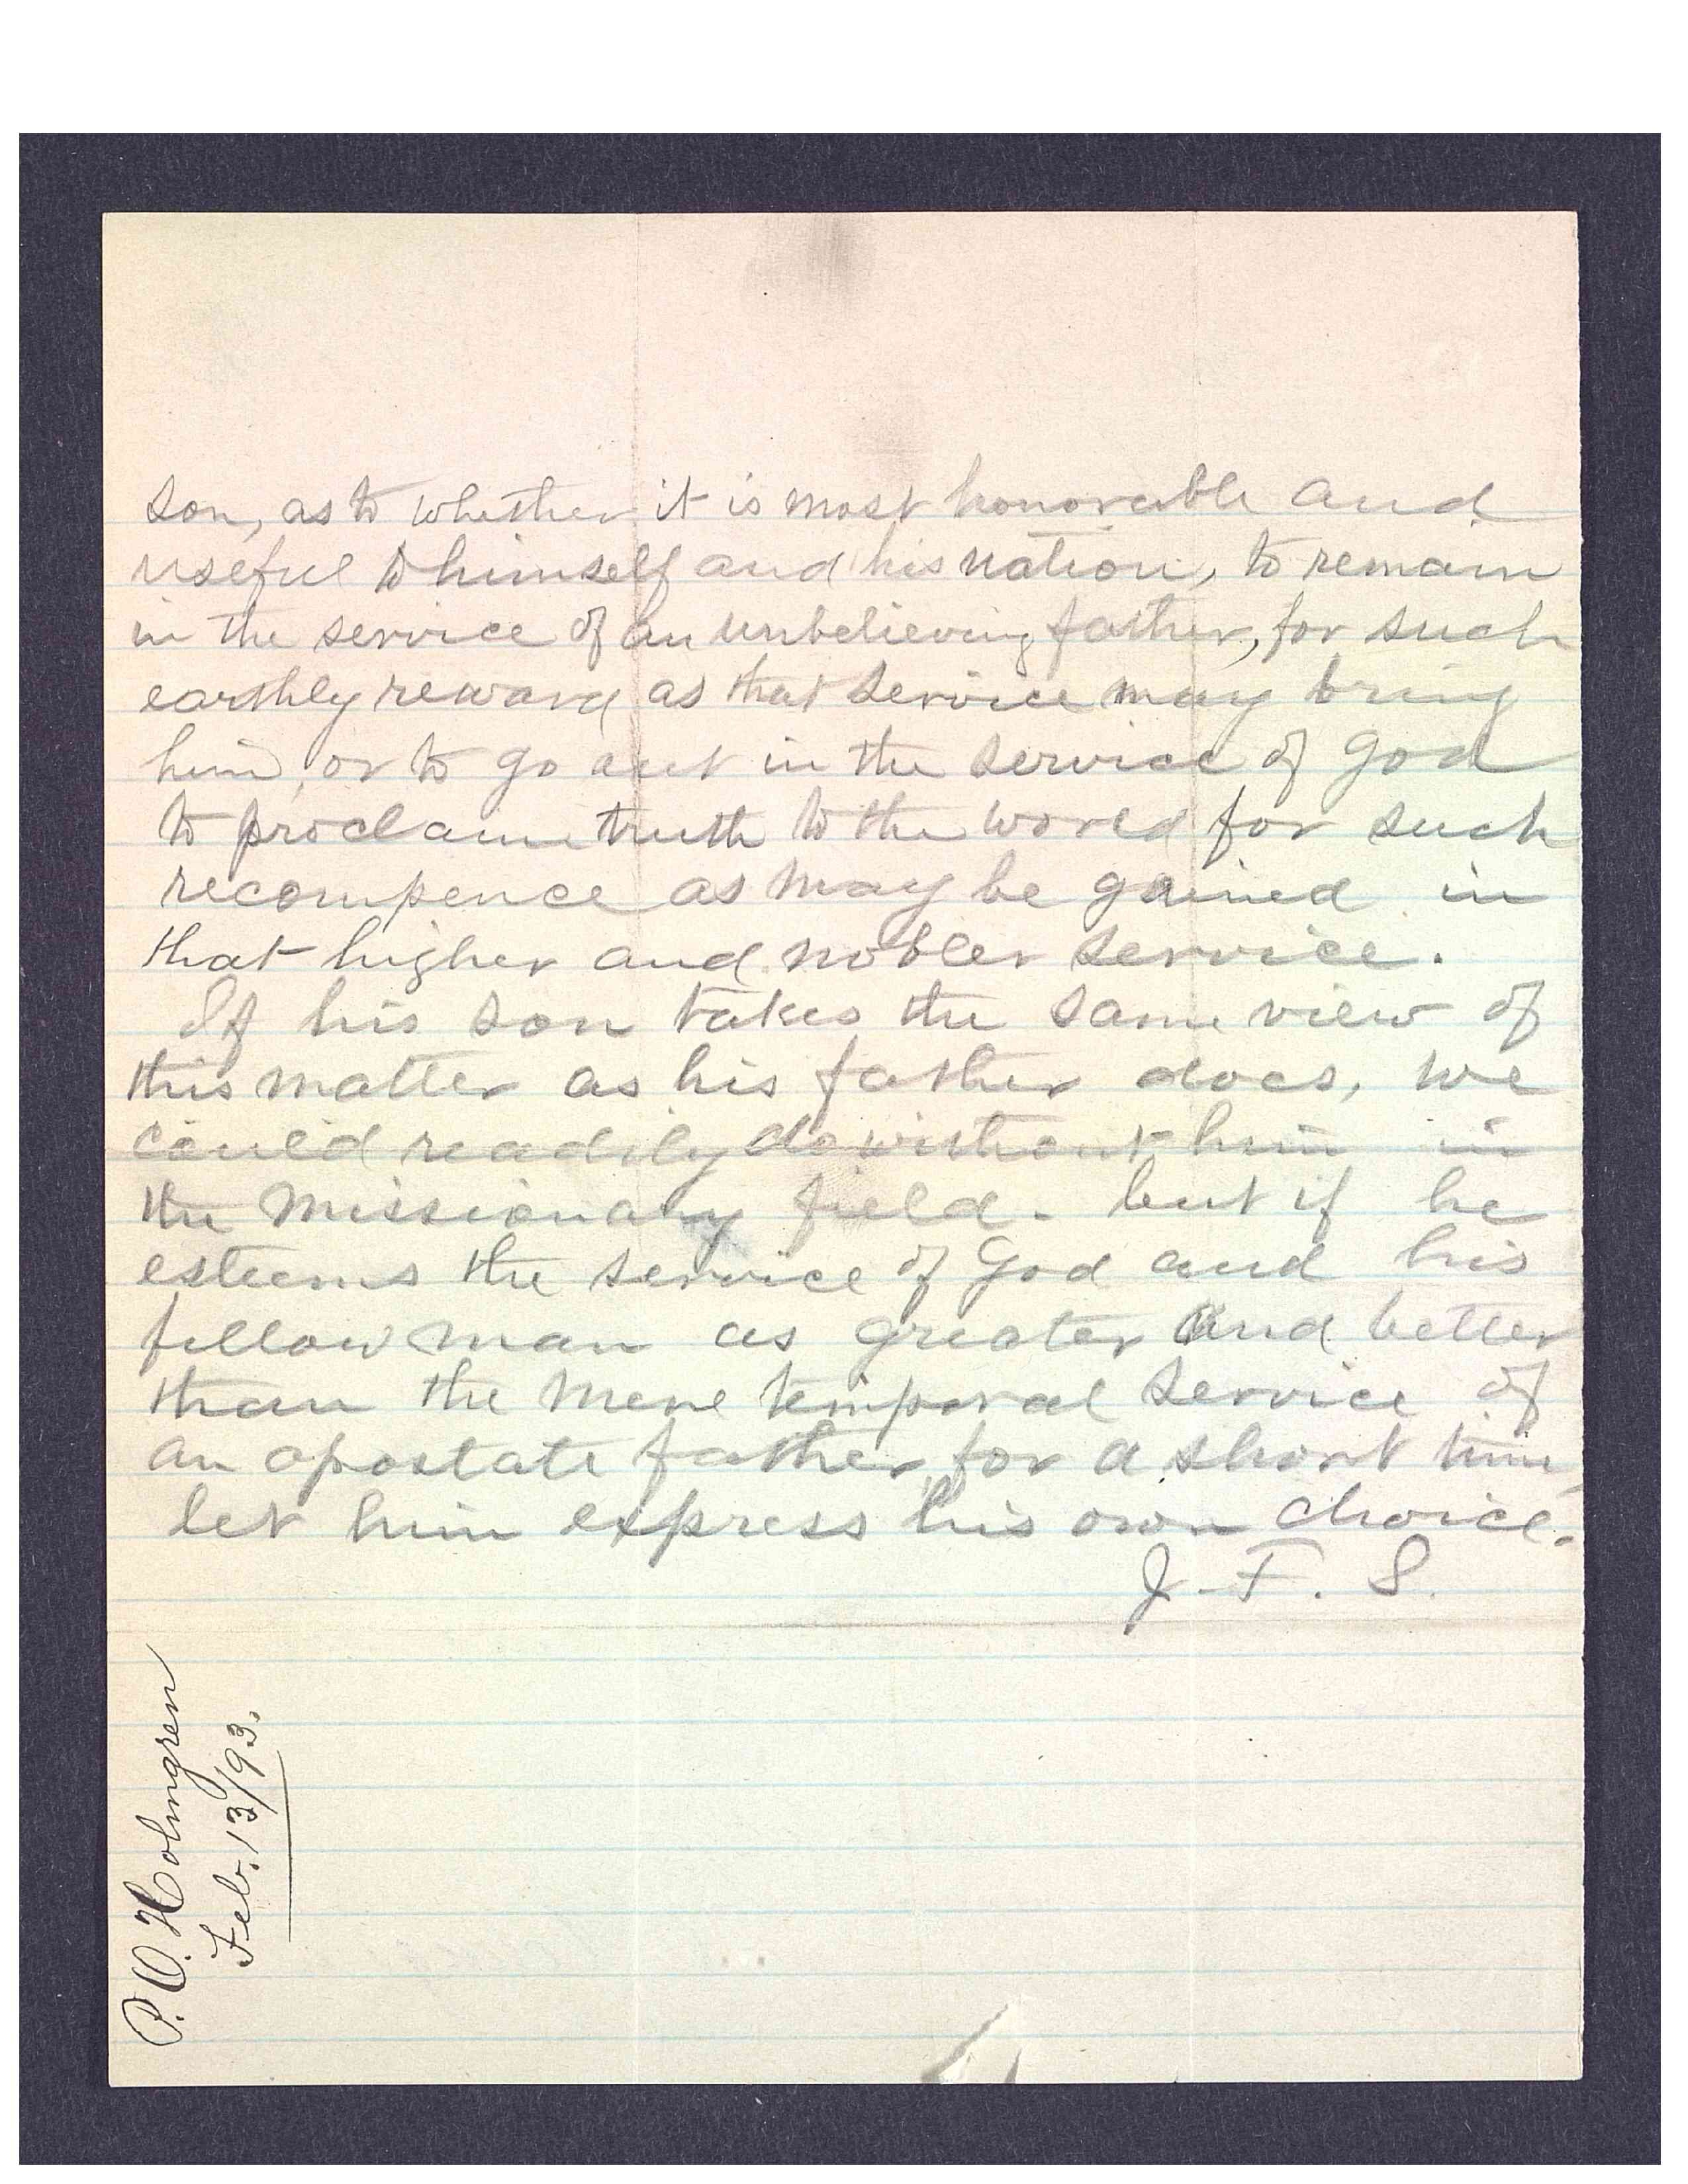 son, as to whether it is most honorable and
useful to himself and his nation, to remain
in the service of an unbelieving father, for such
earthly reward as that service may bring
him, or to go out in the service of God
to proclaim truth to the world for such
recompence as may be gained in
that higher and nobler service.
If his son takes the same view of
this matter as his father does, we
could readily do without him in
the missionary field. but if he
esteems the service of God and his
fellow man as greater and better
than the mere temporal service of
an apostate father, for a short time,
let him express his own choice.
J. F. S.
P. O. Holmgren
Feb. 13/93.